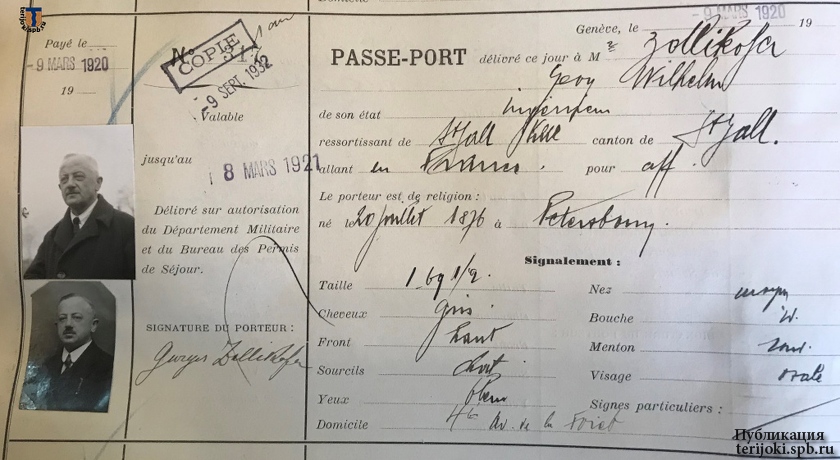 terijoki.spb.ru
Domicile
Payé le
- 9 MARS 1920
19
No 317
COPIE
- 9 SEPT. 1932
1 an
Valable
jusqu'au
8 MARS 1921
Délivré sur autorisation
du Département Militaire
et du Bureau des Permis
de Séjour.
SIGNATURE DU PORTEUR :
Georges Zollikofer
- 9 MARS 1920
Genève, le 19
PASSE-PORT délivré ce jour à M r Zollikofer
Georg Wilhelm
de son état ingénieur
ressortissant de St Gall Ville canton de St Gall.
allant en France. pour aff.
Le porteur est de religion :
né le 20 juillet 1876 à Petersbourg.
Signalement :
Taille 1.69 1/2.
Cheveux gris
Front haut
Sourcils chat
Yeux bleus
Domicile 46 Av. de la Foret
Nez moyen
Bouche id.
Menton rond.
Visage ovale
Signes particuliers :
Публикация
terijoki.spb.ru